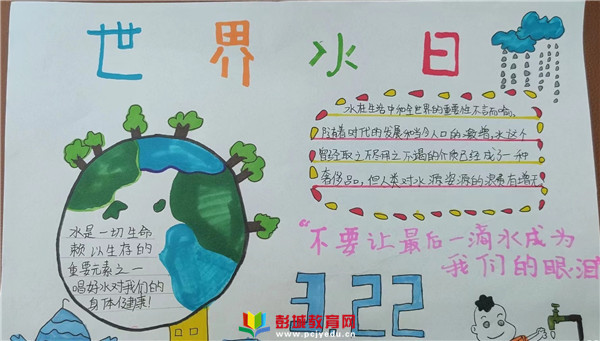 世界水日
水在生活中和全世界的重要性不言而喻。
随着时代的发展和当今人口的激增,水这个
曾经取之不尽用之不竭的介质已经成了一种
奢侈品,但人类对水资源的浪费有增无
"不要让最后一滴水成为
我们的眼泪
水是一切生命
赖以生存的
重要元素之一
喝好水对我们的
身体健康!
3.22
彭城教育网
www.pcjyedu.cn